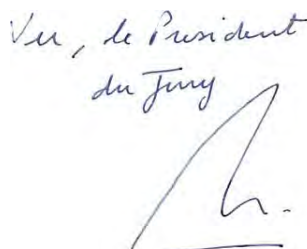 Vu, le President
du Jury